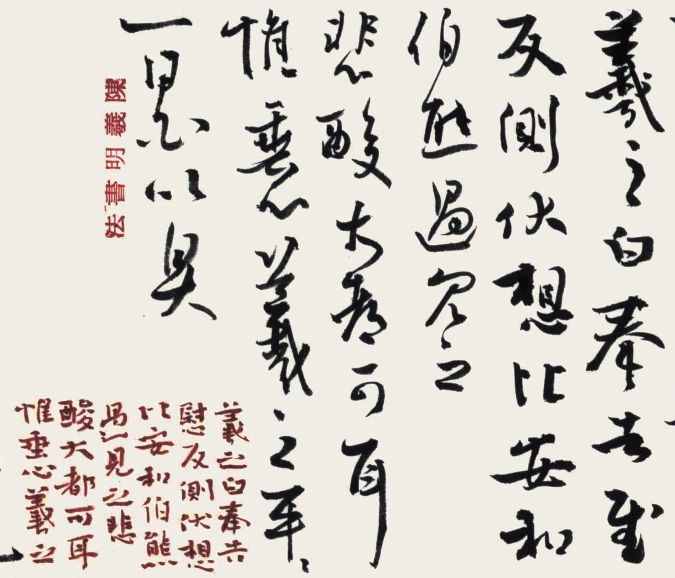 羲之白奉告慰
反側伏想比安和
伯熊過見之
悲酸大都可耳
惟垂心羲之再〻
一以具
陳羲明書法
羲之白奉告
慰反側伏想
比安和伯熊
過見之悲
酸大都可耳
惟垂心羲之